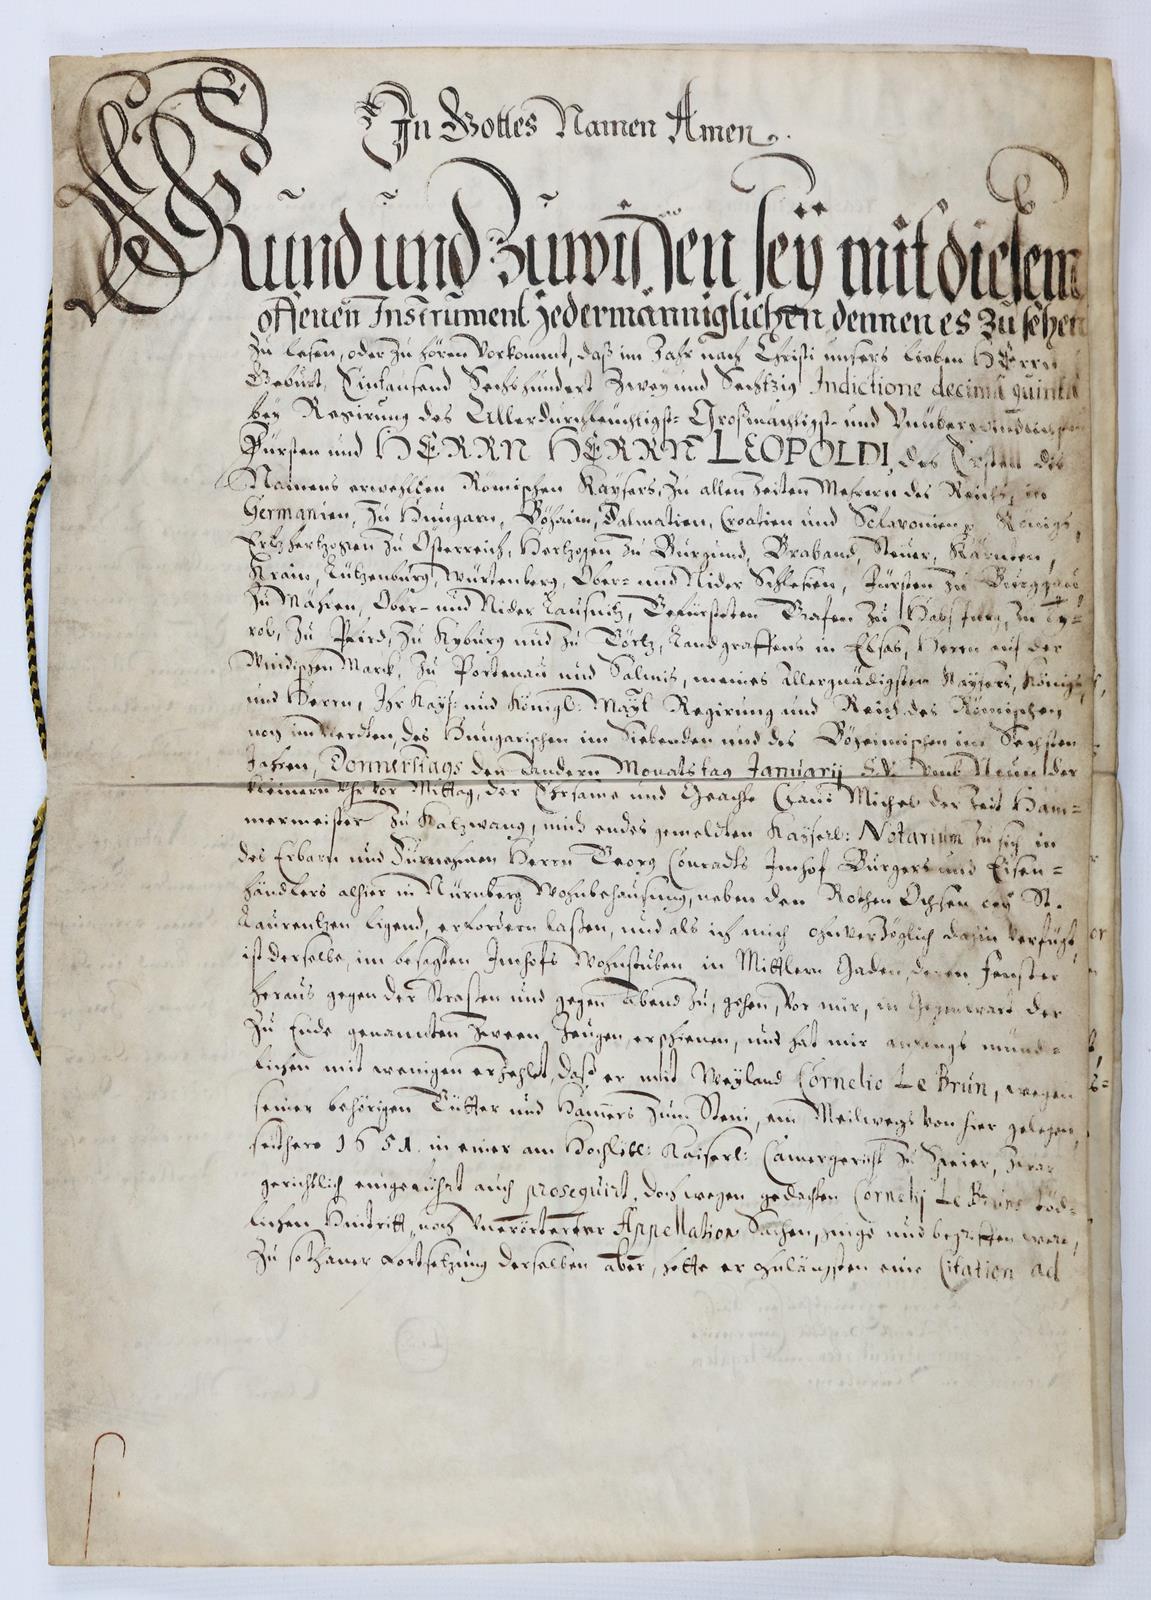 In Gottes Namen Amen.
Kund und zuwißen seÿ mit diesem
offenen Instrument jedermänniglichen, dennen es zu sehen
zu lesen, oder zu hören vorkommt, daß im Jahr nach Christi unsers lieben HErrn
Geburt, Eintausend Sechshundert Zwey und Sechtzig Indictione decima quinta
bey Regirung des Allerdurchleuchtigst- Großmächtigst- und Unüberwindlichsten
Fürsten und HERRN HERRN LEOPOLDI, des Ersten des
Namens erwehlten Römischen Kaysers, zu allen Zeiten Mehrern des Reichs, in
Germanien, zu Hungarn, Böhaim, Dalmatien, Croatien und Sclavonien p. Königs,
Ertzhertzogen zu Österreich, Hertzogen zu Burgund, Braband, Steuer, Kärnten,
Krain, Lützenburg, Würtenberg, Ober- und Nider Schlesien, Fürsten zu Burggau,
zu Mähren, Ober- und Nider Lausnitz, Gefürsteten Grafen zu Habspurg, zu Ty-
rol, zu Pfird, zu Kyburg und zu Görtz, Landgraffens in Elsas, Herrn auf der
Windischen Marck, zu Portenau und Salins, meines allergnädigsten Kaysers, Königs,
und Herrn, Ihr Kays: und Königl: Mayt Regirung und Reich des Römischen
im Vierdten, des Hungarischen im Siebenden und des Böheimischen im Sechsten
Jahren, Donnerstags den Andern Monatstag Januarij S.V. umb Neun der
kleinern Uhr vor Mittag, der Ehrsame und Geachte Hans Michel der Zeit Ham-
mermeister zu Katzwang, mich endes gemeldten Kayserl: Notarium zu sich in
des Erbarn und Fürnehmen Herrn Georg Conradts Imhof Burgers und Eisen-
händlers alhier in Nürnberg Wohnbehausung, neben den Rothen Ochsen bey St.
Laurentzen ligend, erfordern laßen, und als ich mich ohnverzöglich dahin verfügt,
ist derselbe, im besagten Imhofs Wohnstuben in Mittlern Gaden, deren Fenster
heraus gegen der Strassen und gegen Abend zu, gehen, vor mir, in Gegenwart der
zu Ende genannten zween Zeugen erschienen, und hat mir anfangs münd-
lichen mit wenigen erzehlet, daß er mit Weyland Cornelio Le Brun, wegen
seiner behörigen Gütter und Hammers zum Stein, ein Meilwegs von hier gelegen,
seithero 1651. in einer am Hochlöbl: Kaiserl: Camergericht zu Speier, zwar
gerichtlich eingeführt auch prosequirt, doch wegen gedachten Cornelij Le Bruns töd-
lichen Hintritt, noch unerörterter Appellation Sachen, und were,
zu sothaner Fortsetzung derselben aber, hette er zulängsten eine Citation ad